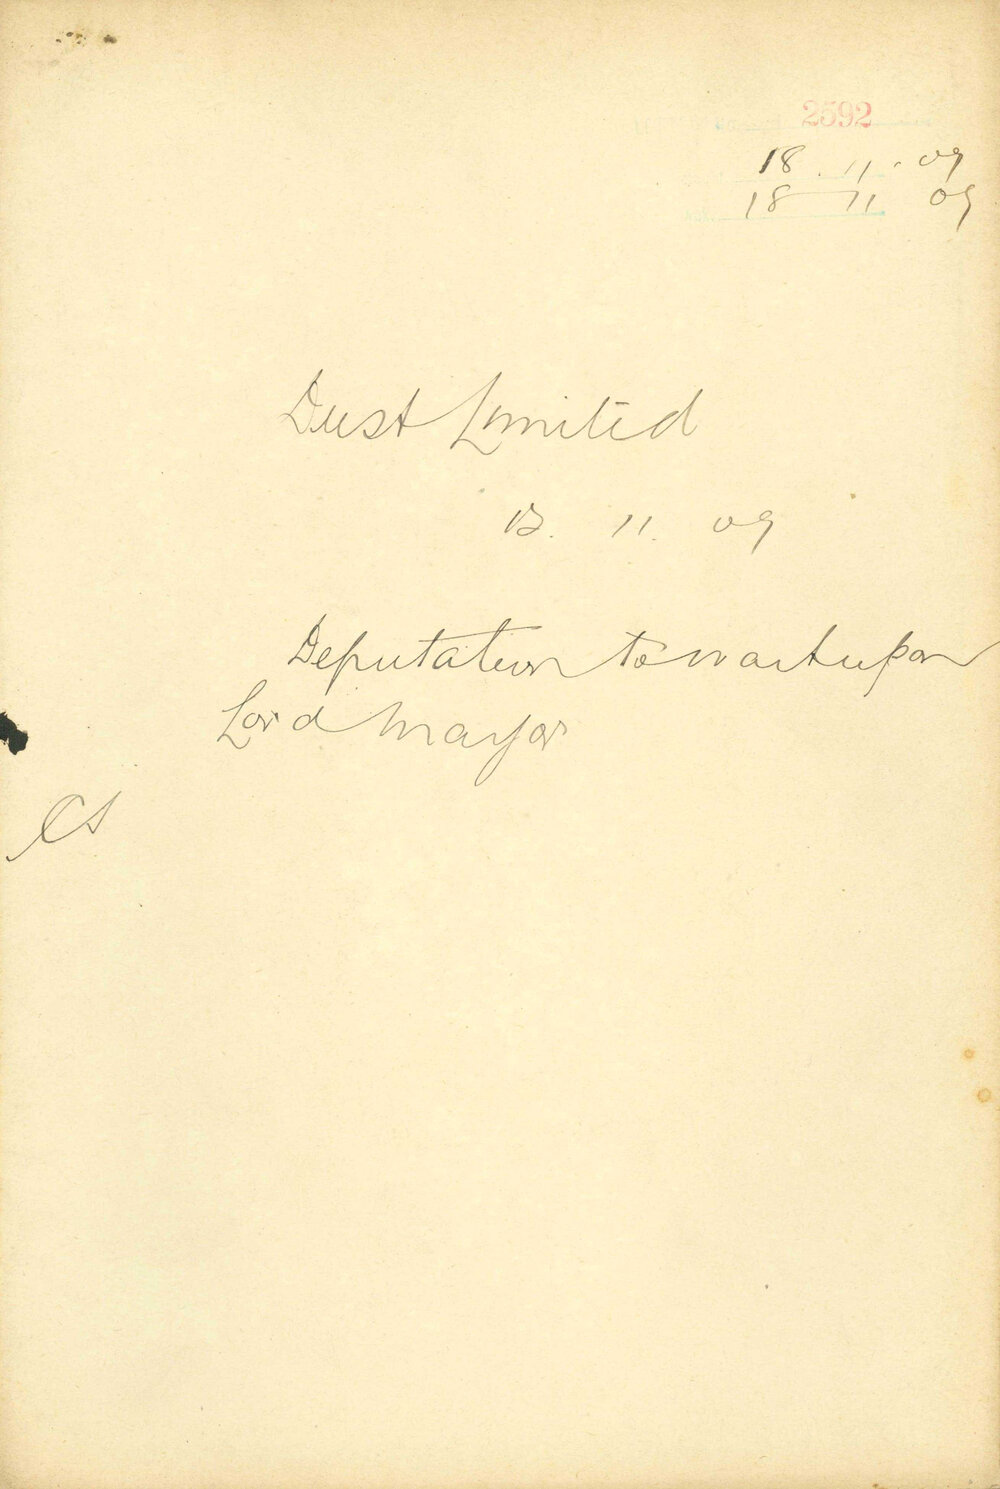 2592
18.11.09
18 11 09
Dust Limited
11. 09
Deputation to wait upon
Lord Mayor